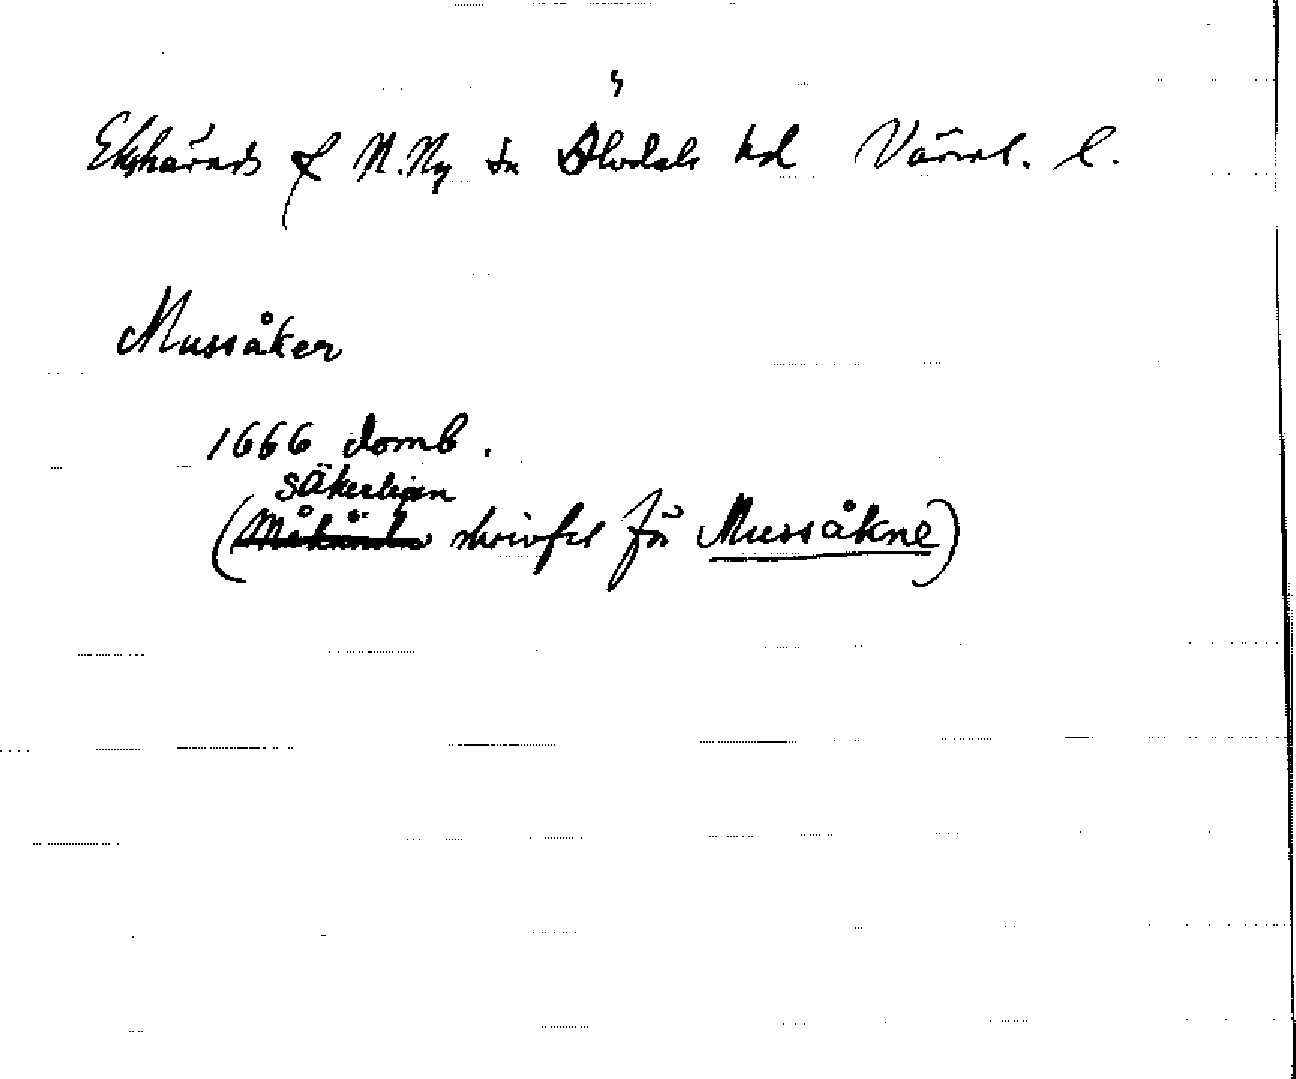 Ekshärads f N. Ny tn Älvdals hd Värml. l.
Mussåker
1666 domb.
säkerligen
( skrivfel för Mussåkne)